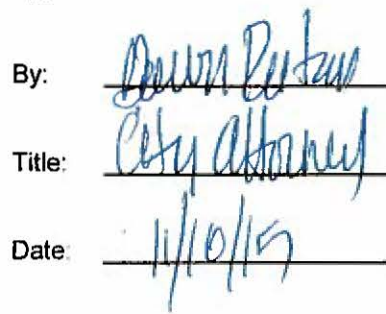 By:
Title: City Attorney
Date: 11/10/15